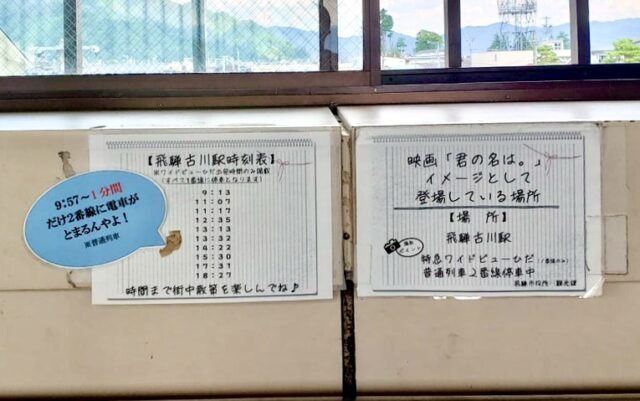 9:57～1分間
だけ2番線に電車が
とまるんやよ！
※普通列車
【飛騨古川駅時刻表】
※ワイドビューひだ出発時間のみ掲載
(すべて1番線に停車となります)
9:13
11:07
11:17
12:35
13:13
13:32
14:22
15:30
17:31
18:27
時間まで街中散策を楽しんでね♪
映画「君の名は。」
イメージとして
登場している場所
【場 所】
飛騨古川駅
撮影
ポイント
特急ワイドビューひだ(1番線のみ)
普通列車2番線停車中
飛騨市役所 観光課